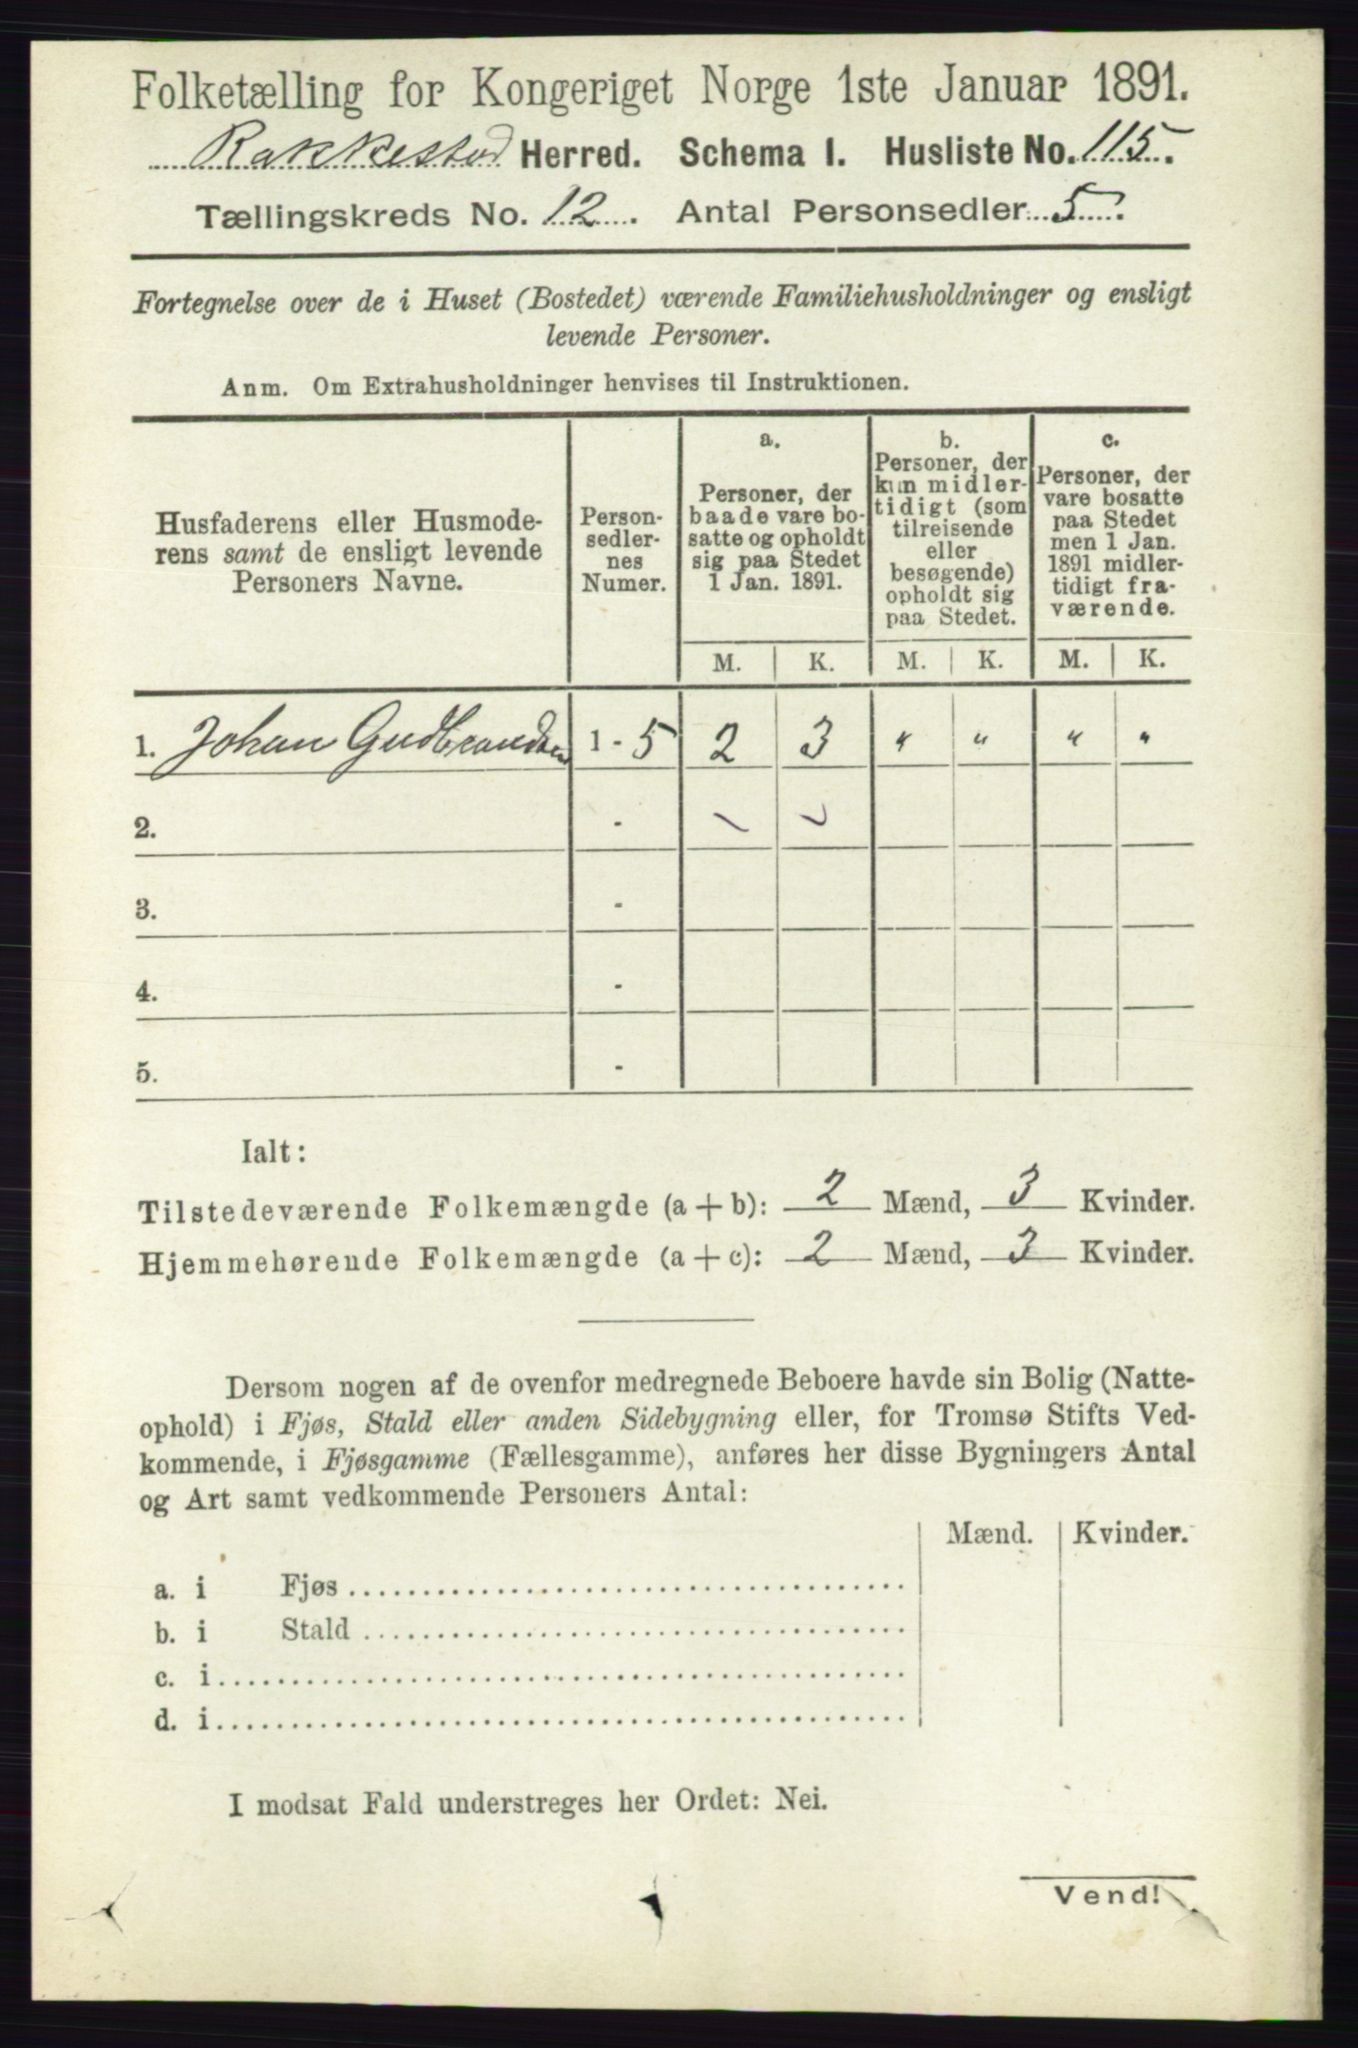 Folketælling for Kongeriget Norge 1ste Januar 1891.
Rakkestad Herred. Schema I. Husliste No. 115.
Tællingskreds No. 12. Antal Personsedler 5.
Fortegnelse over de i Huset (Bostedet) værende Familiehusholdninger og ensligt
levende Personer.
Anm. Om Extrahusholdninger henvises til Instruktionen.
Husfaderens eller Husmode-
rens samt de ensligt levende
Personers Navne.
Person-
sedler-
nes
Numer.
a.
Personer, der
baade vare bo-
satte og opholdt
sig paa Stedet
1 Jan. 1891.
b.
Personer, der
kun midler-
tidigt (som
tilreisende
eller
besøgende)
opholdt sig
paa Stedet.
c.
Personer, der
vare bosatte
paa Stedet
men 1 Jan.
1891 midler-
tidigt fra-
værende.
M. K. M. K. M. K.
1. Johan Gudbrandsen 1 - 5 2 3 " " " "
2. -
3. -
4. -
5. -
Ialt:
Tilstedeværende Folkemængde (a + b): 2 Mænd, 3 Kvinder.
Hjemmehørende Folkemængde (a + c): 2 Mænd, 3 Kvinder.
Dersom nogen af de ovenfor medregnede Beboere havde sin Bolig (Natte-
ophold) i Fjøs, Stald eller anden Sidebygning eller, for Tromsø Stifts Ved-
kommende, i Fjøsgamme (Fællesgamme), anføres her disse Bygningers Antal
og Art samt vedkommende Personers Antal:
Mænd. Kvinder.
a. i Fjøs
b. i Stald
c. i
d. i
I modsat Fald understreges her Ordet: Nei.
Vend!